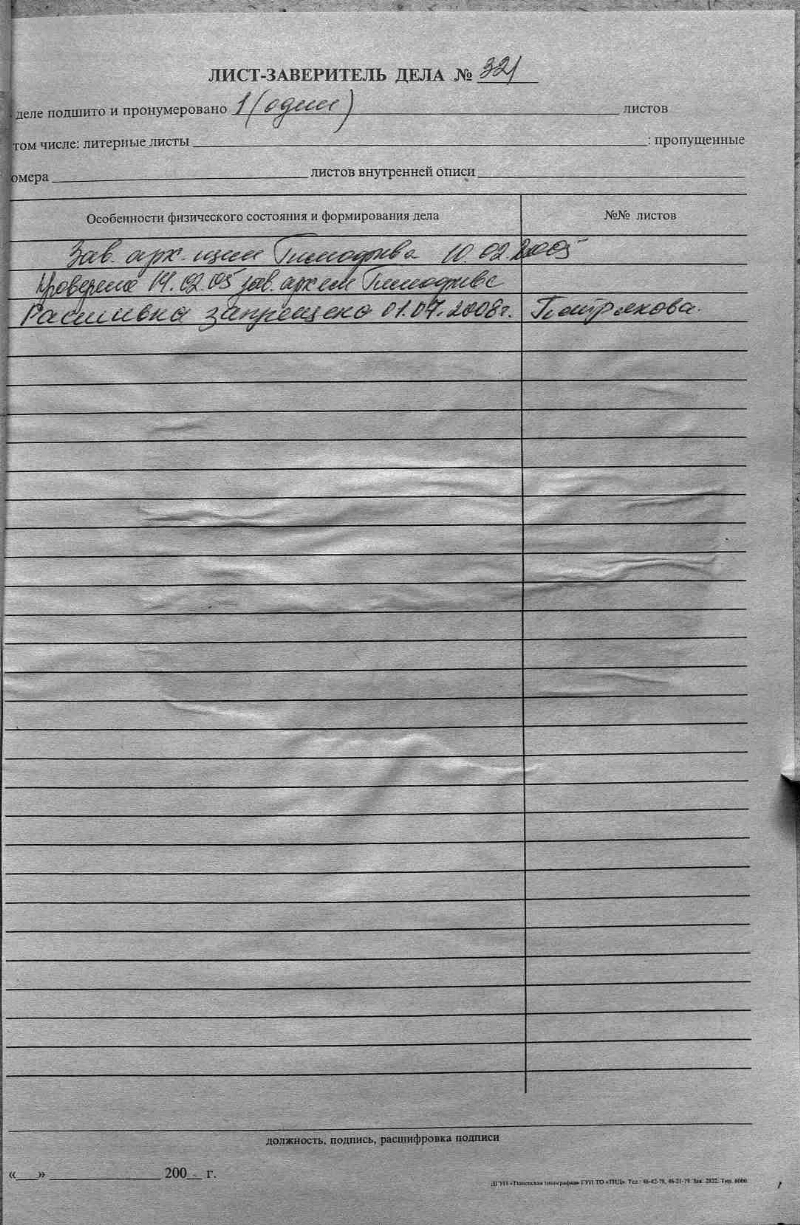 ЛИСТ-ЗАВЕРИТЕЛЬ ДЕЛА № 321
деле подшито и пронумеровано 1 (один) листов
том числе: литерные листы : пропущенные
омера листов внутренней описи
Особенности физического состояния и формирования дела №№ листов
Зав. арх. 10.02.2005
Проверено 14.02.05 зав. архем
Расшивка запрещено 01.07.2008г.
должность, подпись, расшифровка подписи
«___» 200__ г.